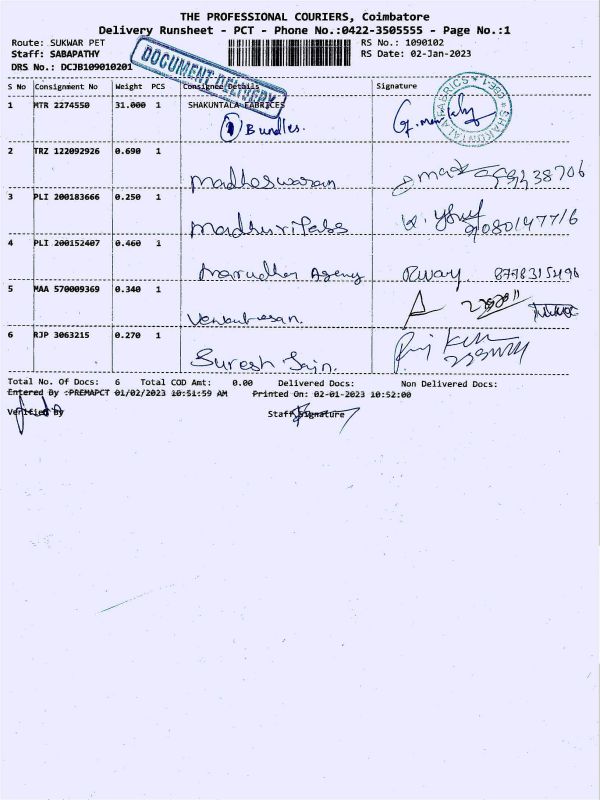 THE PROFESSIONAL COURIERS, Coimbatore
Delivery Runsheet - PCT - Phone No.:0422-3505555 - Page No.:1
Route: SUKWAR PET
RS No.: 1090102
Staff: SABAPATHY
RS Date: 02-Jan-2023
DRS No.: DCJB109010201
DOCUMENT DELIVERY
S No Consignment No Weight PCS Consignee Details Signature
1 MTR 2274550 31.000 1 SHAKUNTALA FABRICES
1 Bundles.
2 TRZ 122092926 0.690 1
Madheswaran
3 PLI 200183666 0.250 1
4 PLI 200152407 0.460 1
Agency
5 MAA 570009369 0.340 1
6 RJP 3063215 0.270 1
Suresh Jain.
Total No. Of Docs: 6 Total COD Amt: 0.00 Delivered Docs: Non Delivered Docs:
Entered By :PREMAPCT 01/02/2023 10:51:59 AM Printed On: 02-01-2023 10:52:00
Verified By Staff Signature